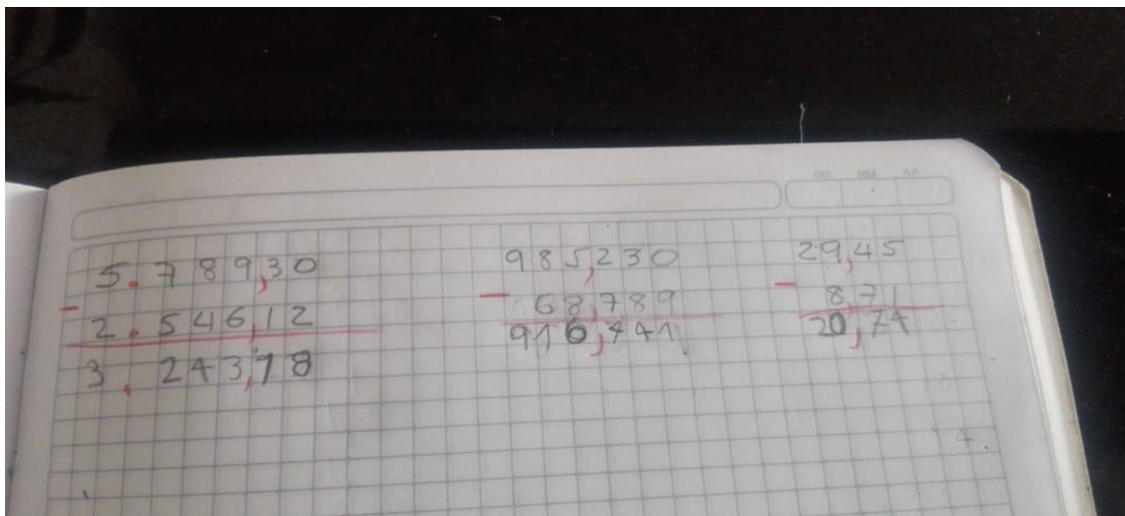 DD MM AA
5.789,30
- 2.546,12
3.243,18
985,230
- 68,789
916,441
29,45
- 8,71
20,74